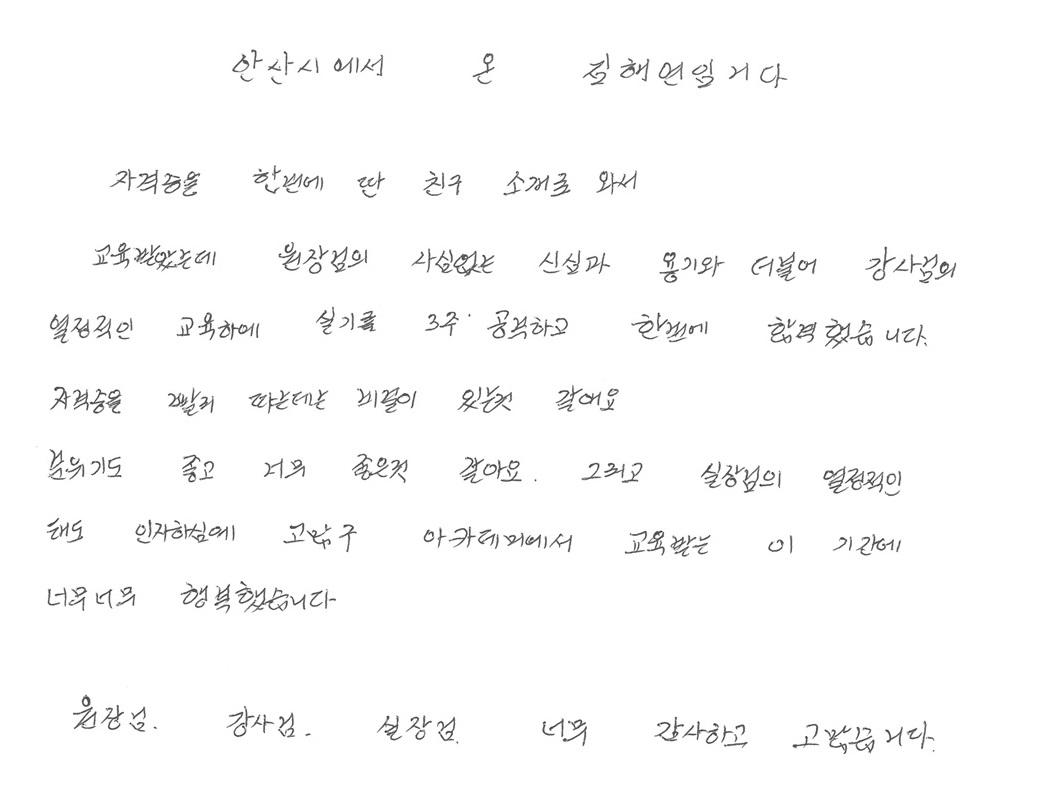 안산시에서 온 김해연입니다
자격증을 한번에 딴 친구 소개로 와서
교육받았는데 원장님의 사심없는 신심과 용기와 더불어 강사님의
열정적인 교육하에 실기를 3주 공부하고 한번에 합격했습니다.
자격증을 빨리 따는데는 비결이 있는것 같애요
분위기도 좋고 너무 좋은것 같아요. 그리고 실장님의 열정적인
태도 인자하심에 고맙구 아카데미에서 교육받는 이 기간에
너무너무 행복했습니다
원장님. 강사님. 실장님 너무 감사하고 고맙습니다.